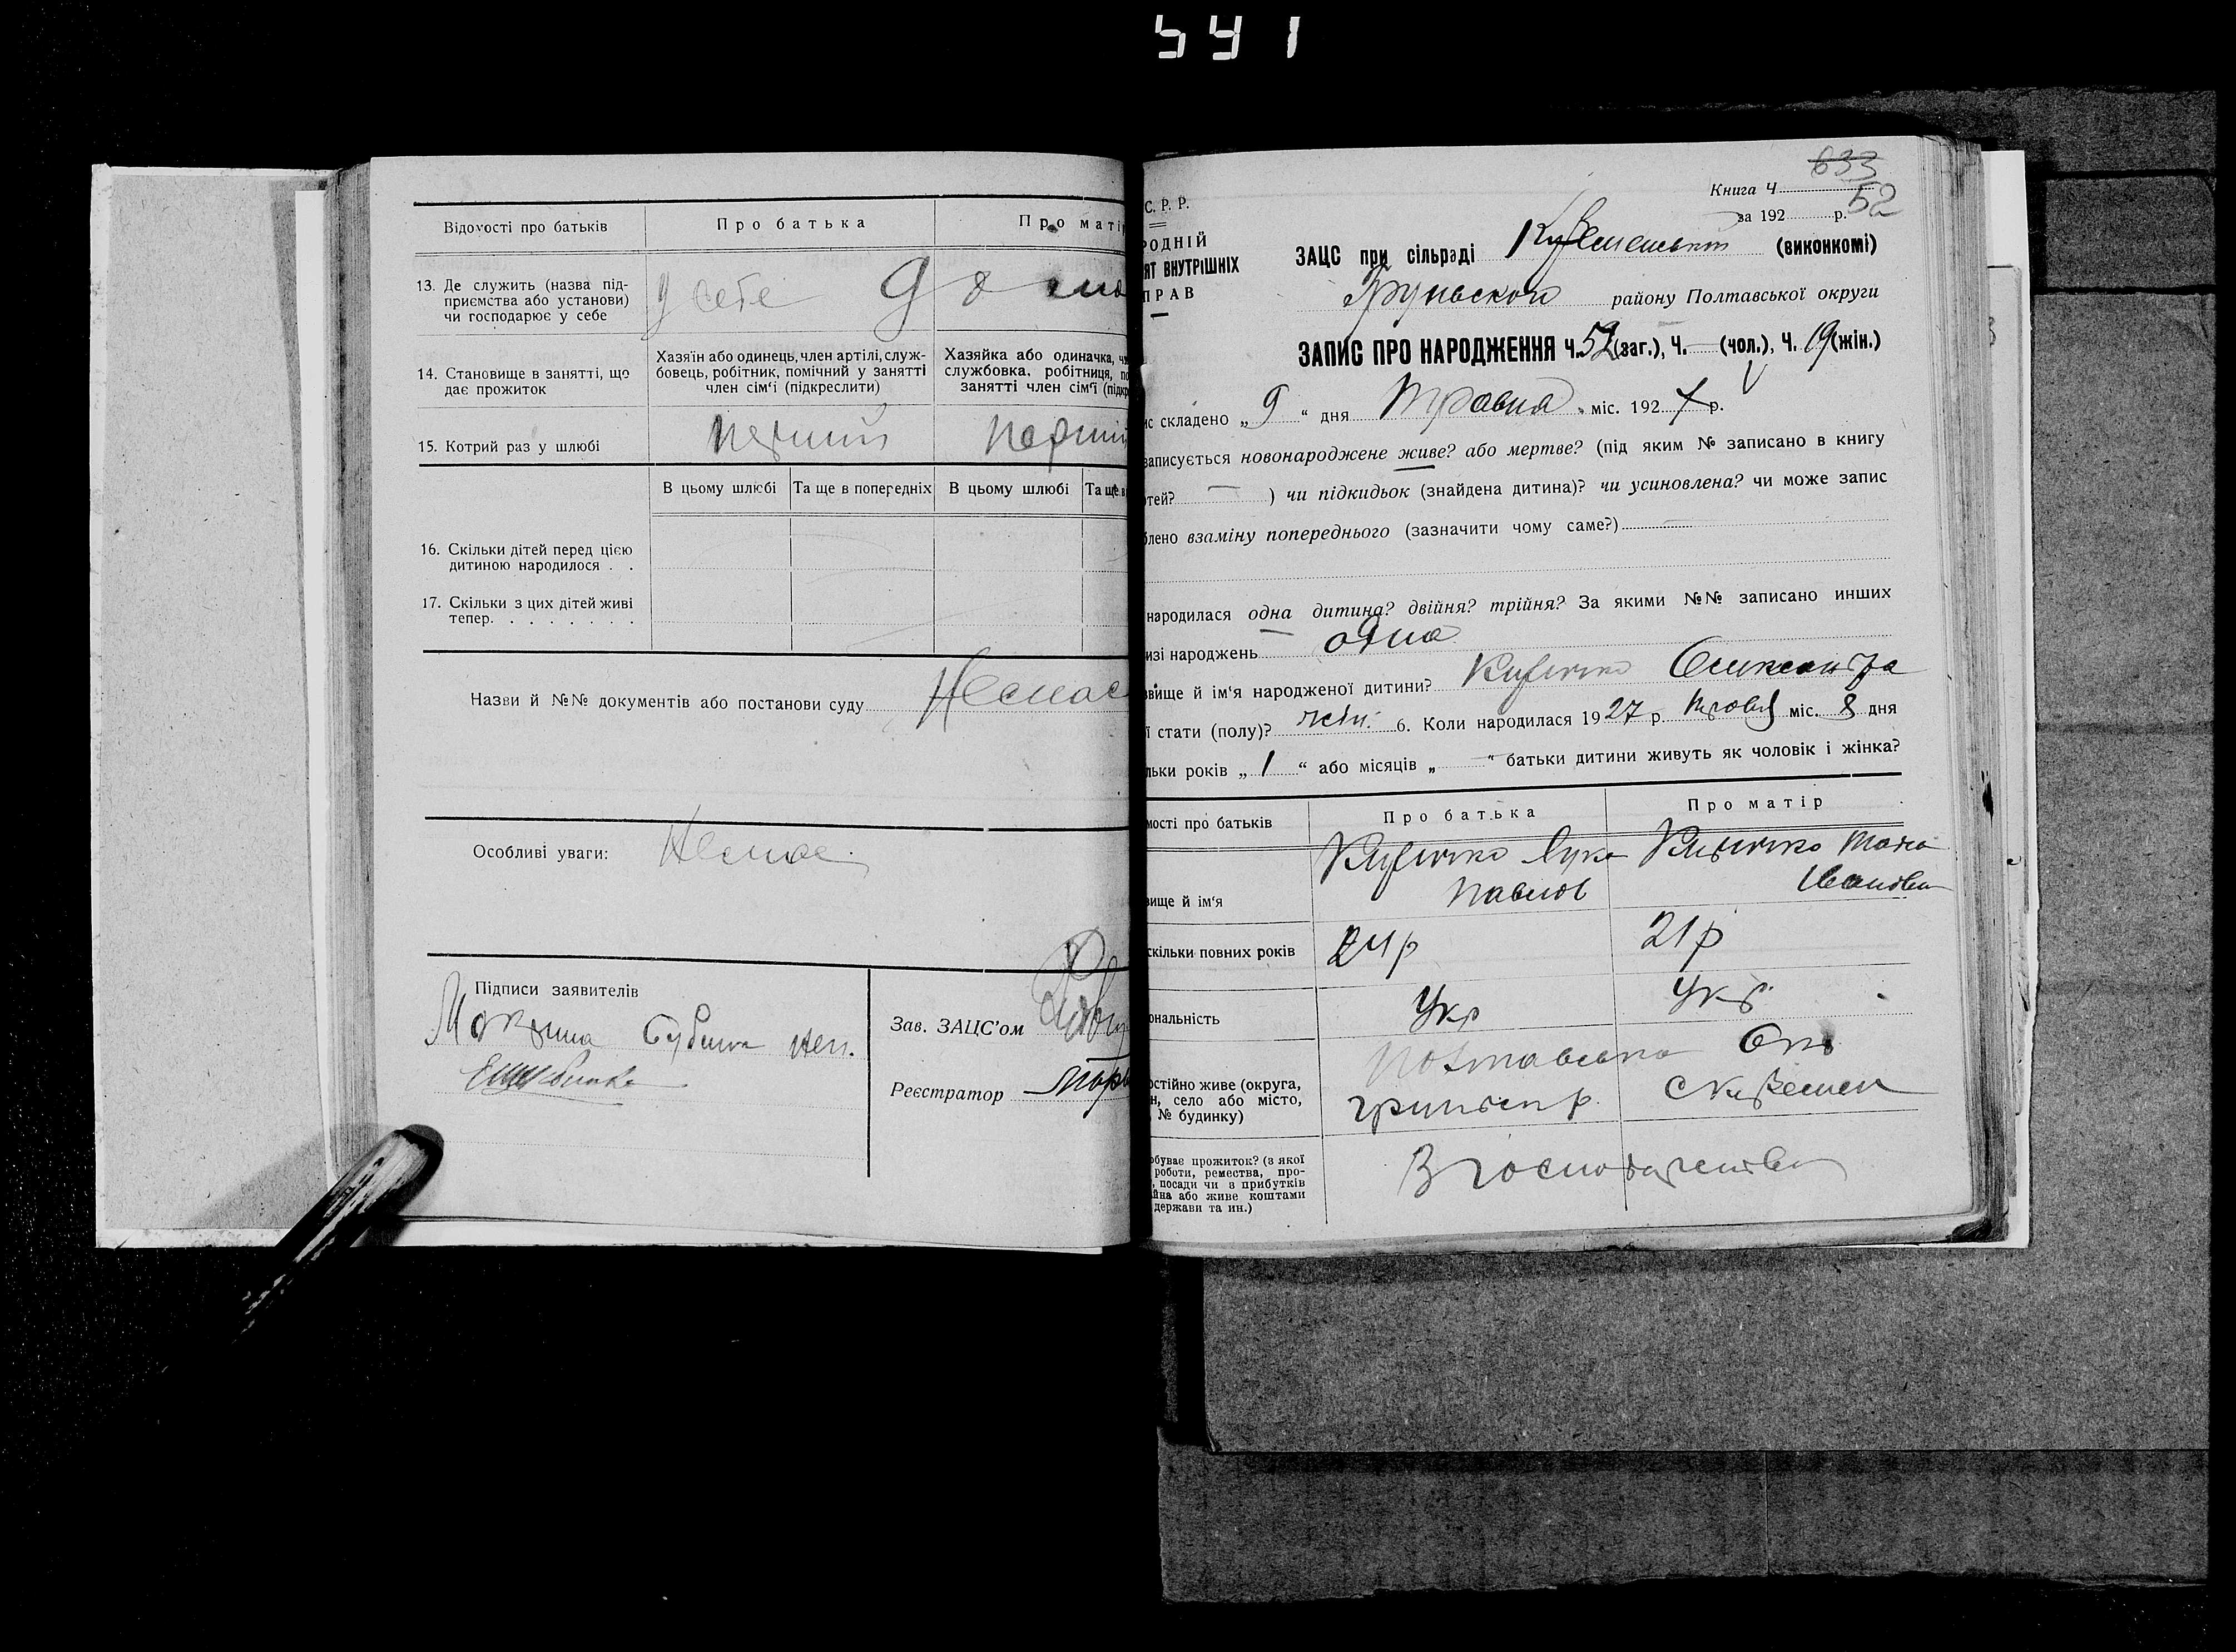 541
Відомості про батьків
Про батька
Про матір
13. Де служить (назва під-
приємства або установи)
чи господарює у себе
у себе
дома
14. Становище в занятті, що
дає прожиток
Хазяїн або одинець, член артілі, служ-
бовець, робітник, помічний у занятті
член сім'ї (підкреслити)
Хазяйка або одиначка, ч
службовка, робітниця, по
занятті член сім'ї (підкр
15. Котрий раз у шлюбі
перший
перший
В цьому шлюбі
Та ще в попередніх
В цьому шлюбі
Та ще в
16. Скільки дітей перед цією
дитиною народилося . .
17. Скільки з цих дітей живі
тепер. . . . . . . .
Назви й №№ документів або постанови суду
Немає
Особливі уваги: Немає
Підписи заявителів
Зав. ЗАЦС'ом
Реєстратор
633
Книга Ч
52
за 192 р.
С. Р. Р.
РОДНІЙ
ЯТ ВНУТРІШНІХ
ПРАВ
ЗАЦС при сільраді (виконкомі)
району Полтавської округи
ЗАПИС ПРО НАРОДЖЕННЯ Ч. 52 (заг.), Ч. — (чол.), Ч. 19 (жін.)
ис складено „ 9 “ дня травня міс. 192 7 р.
записується новонароджене живе? або мертве? (під яким № записано в книгу
ртей? — ) чи підкидьок (знайдена дитина)? чи усиновлена? чи може запис
блено взаміну попереднього (зазначити чому саме?)
народилася одна дитина? двійня? трійня? За якими №№ записано инших
изі народжень одна
звище й ім'я народженої дитини? Олександра
ї стати (полу)? жін. 6. Коли народилася 19 27 р. травня міс. 8 дня
льки років „ 1 “ або місяців „ — “ батьки дитини живуть як чоловік і жінка?
мості про батьків
Про батька
Про матір
вище й ім'я
Лука
Павлов
Іванівна
скільки повних років
24 р
21 р
ональність
Укр
Укр
остійно живе (округа,
н, село або місто,
№ будинку)
Полтавська Окр
обуває прожиток? (з якої
роботи, ремества, про-
, посади чи з прибутків
айна або живе коштами
держави та ин.)
З господарства